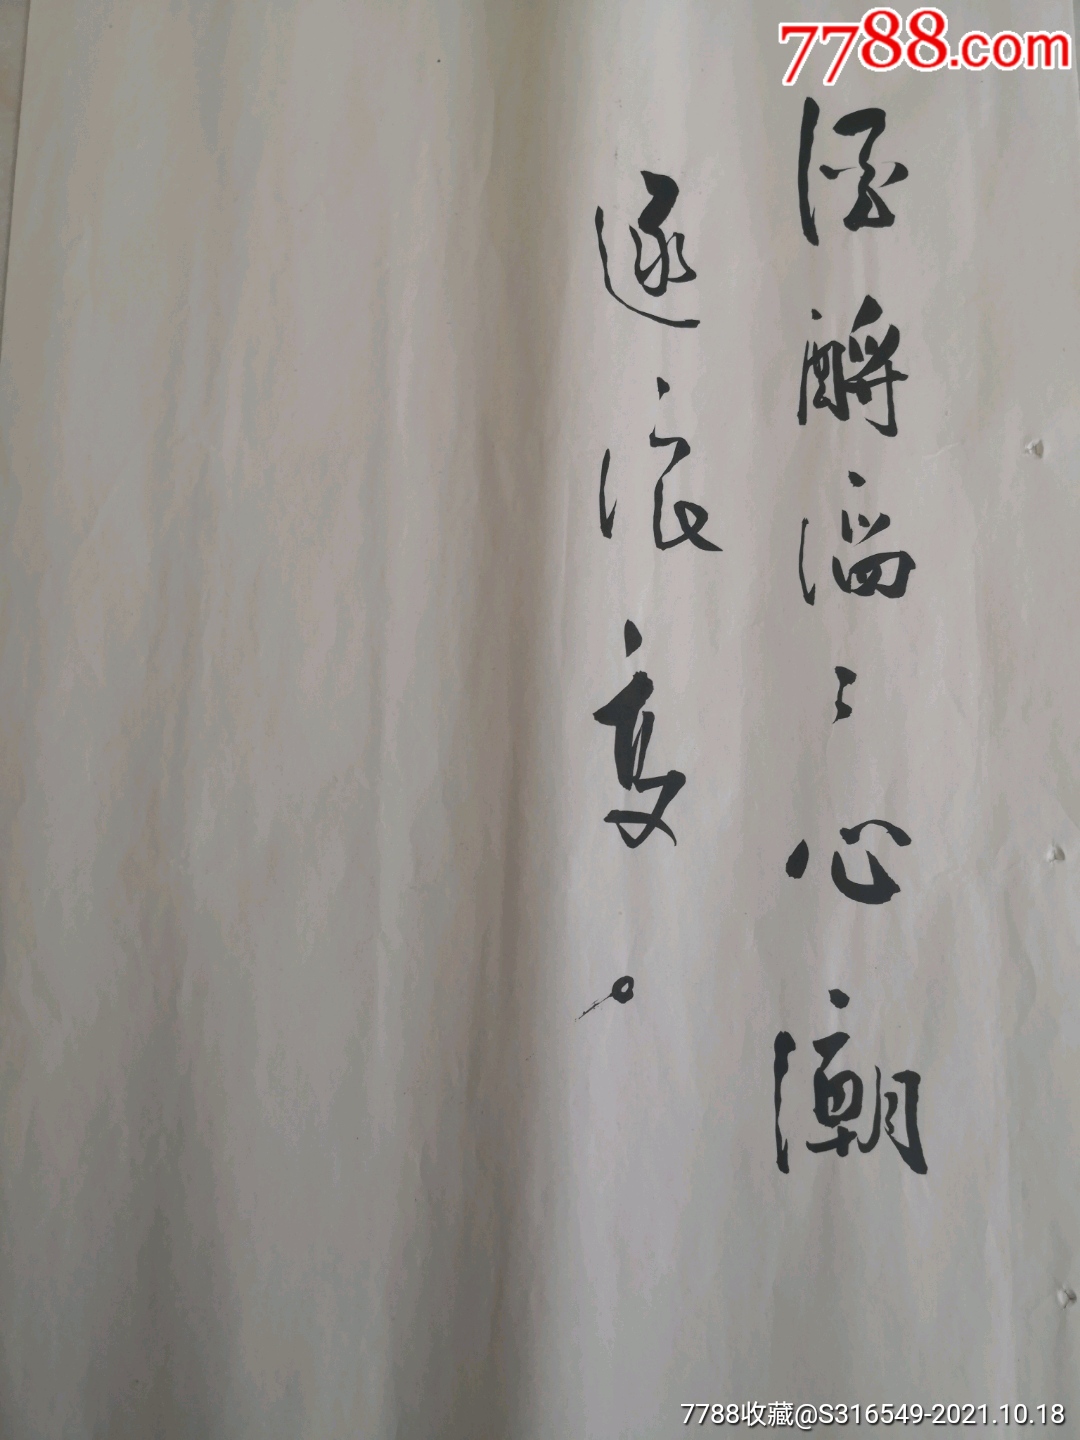 7788.com
酒酹滔〻心潮
逐浪高。
7788收藏@S316549-2021.10.18